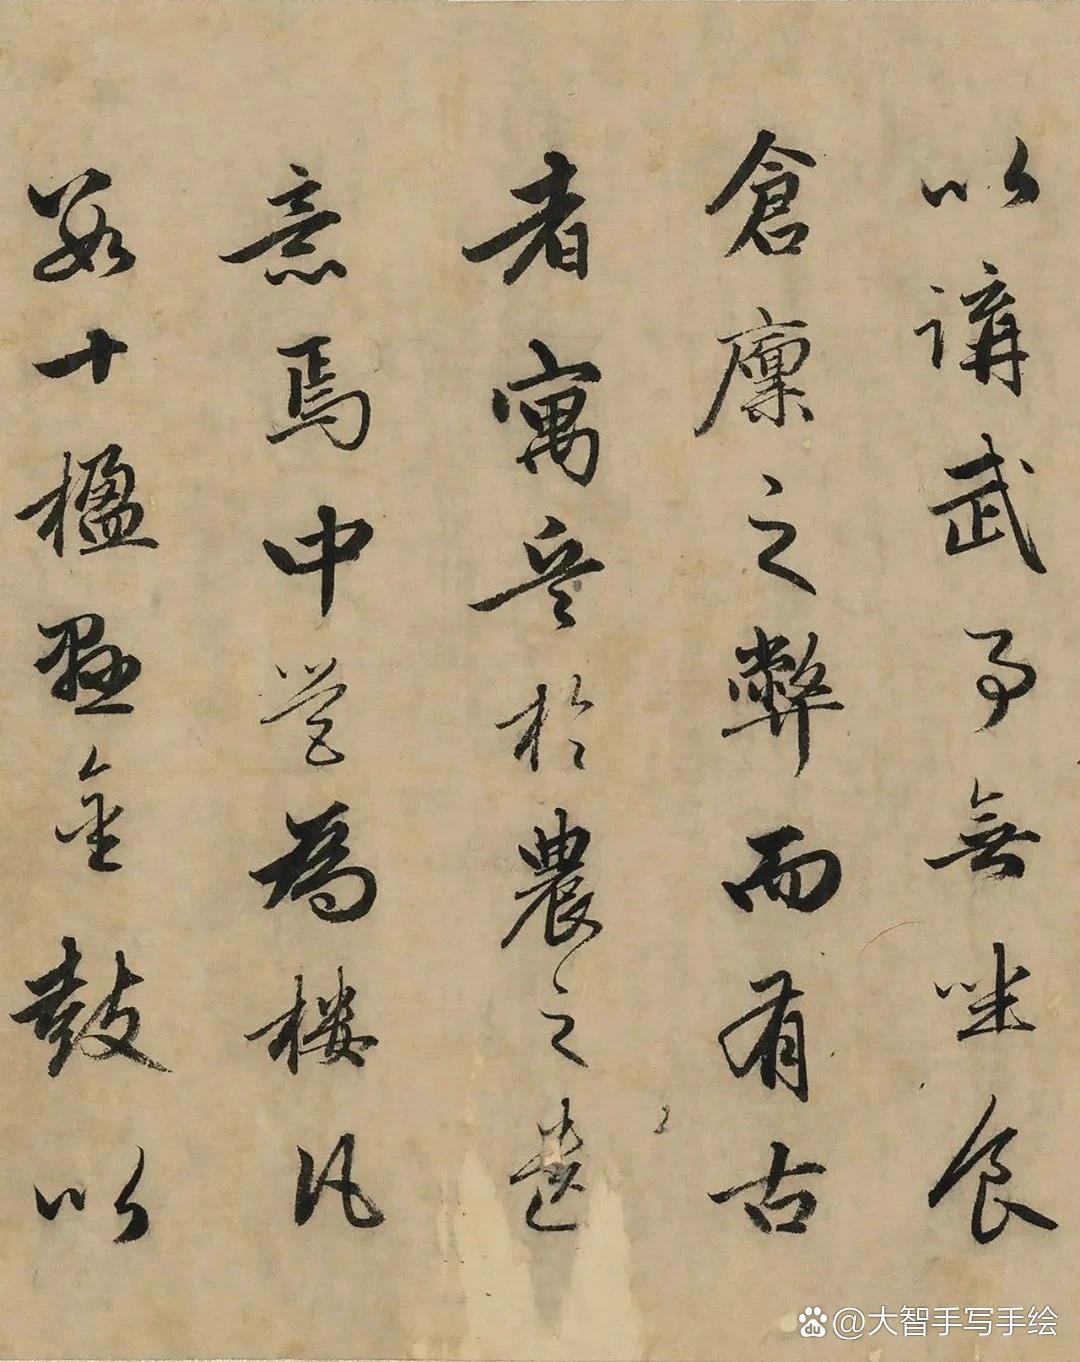 以講武事無坐食
倉廩之弊而有古
者寓兵於農之遺
意焉中營為樓凡
若十楹懸金鼓以
@大智手写手绘